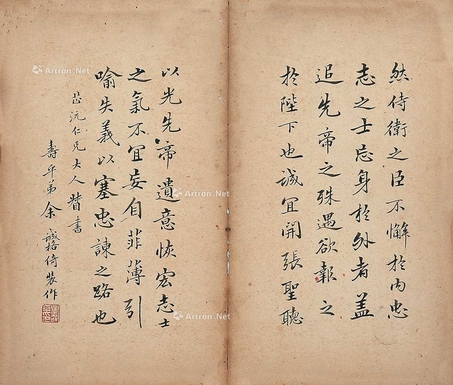 然侍衛之臣不懈於內忠
志之士忘身於外者蓋
追先帝之殊遇欲報之
於陛下也誠宜開張聖聽
以光先帝遺意恢宏志士
之氣不宜妄自菲薄引
喻失義以塞忠諫之路也
芷沅仁兄大人督書
壽平弟余誠格倚裝作
Artron.Net
Artron.Net
Artron.Net
Artron.Net